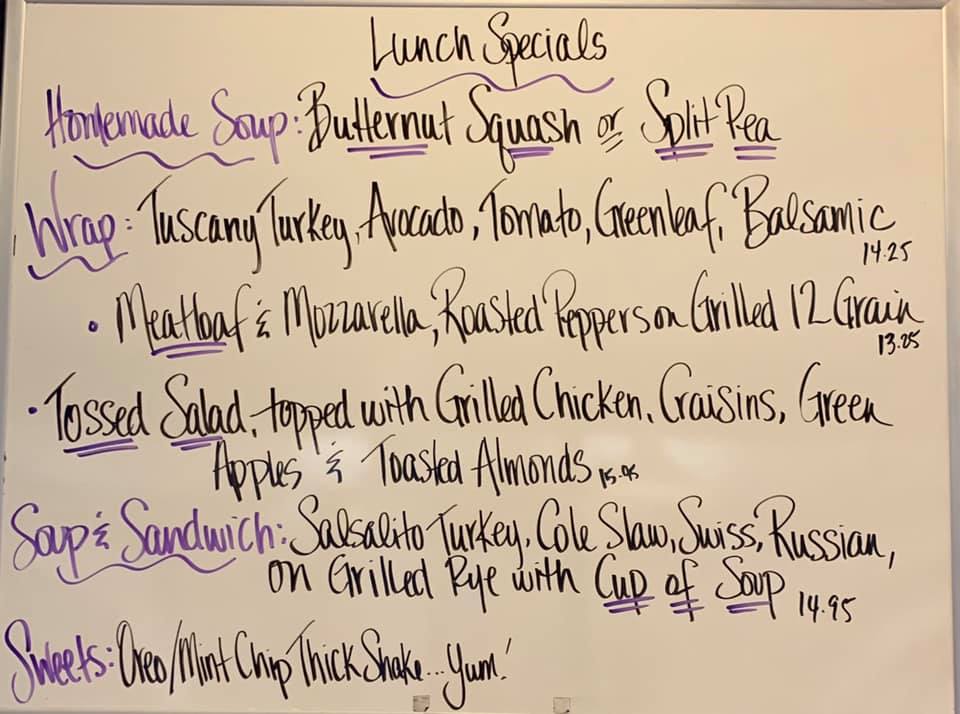 Lunch Specials
Homemade Soup: Butternut Squash or Split Pea
Wrap: Tuscany Turkey, Avocado, Tomato, Greenleaf, Balsamic
14.25
• Meatloaf & Mozzarella, Roasted Peppers on Grilled 12 Grain
13.25
• Tossed Salad, topped with Grilled Chicken, Craisins, Green
Apples & Toasted Almonds 15.95
Soup & Sandwich: Salsalito Turkey, Cole Slaw, Swiss, Russian,
on Grilled Rye with Cup of Soup 14.95
Sweets: Oreo/Mint Chip Thick Shake... Yum!